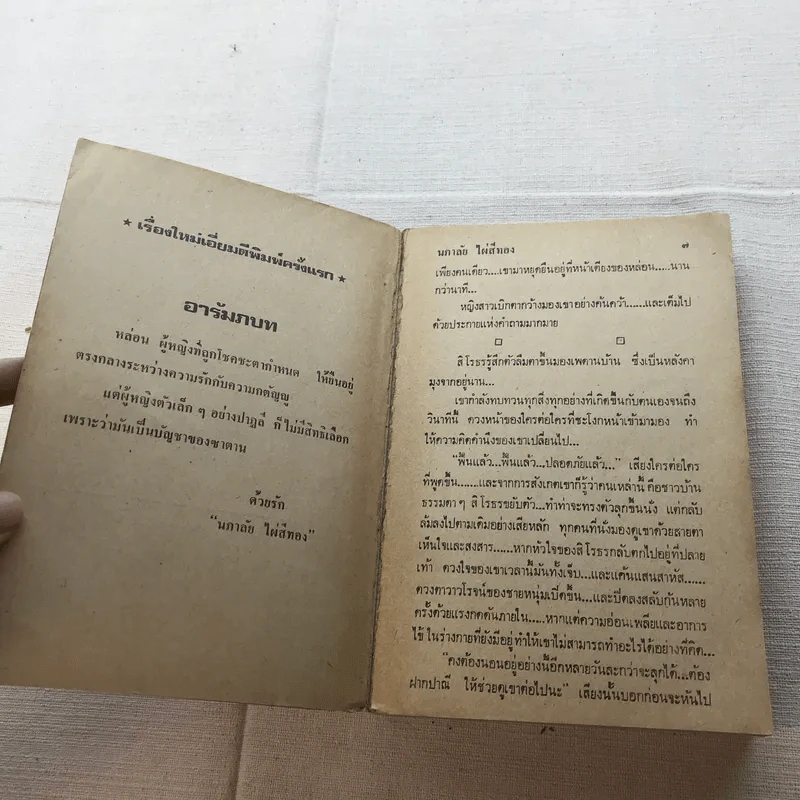 ★ เรื่องใหม่เอี่ยมตีพิมพ์ครั้งแรก ★
อารัมภบท
หล่อน ผู้หญิงที่ถูกโชคชะตากำหนด ให้ยืนอยู่
ตรงกลางระหว่างความรักกับความกตัญญู
แต่ผู้หญิงตัวเล็ก ๆ อย่างปาฏลี ก็ไม่มีสิทธิเลือก
เพราะว่ามันเป็นบัญชาของซาตาน
ด้วยรัก
“นภาลัย ไผ่สีทอง”
นภาลัย ไผ่สีทอง ๗
เพียงคนเดียว....เขามาหยุดยืนอยู่ที่หน้าเตียงของหล่อน.....นาน
กว่านาที...
หญิงสาวเบิกตากว้างมองเขาอย่างค้นคว้า.....และเต็มไป
ด้วยประกายแห่งคำถามมากมาย
สิโรธรรู้สึกตัวลืมตาขึ้นมองเพดานบ้าน ซึ่งเป็นหลังคา
มุงจากอยู่นาน...
เขากำลังทบทวนทุกสิ่งทุกอย่างที่เกิดขึ้นกับตนเองจนถึง
วินาทีนี้ ดวงหน้าของใครต่อใครที่ชะโงกหน้าเข้ามามอง ทำ
ให้ความคิดคำนึงของเขาเปลี่ยนไป...
“ฟื้นแล้ว...ฟื้นแล้ว...ปลอดภัยแล้ว...” เสียงใครต่อใคร
ที่พูดขึ้น......และจากการสังเกตเขาก็รู้ว่าคนเหล่านี้ คือชาวบ้าน
ธรรมดา ๆ สิโรธรขยับตัว...ทำท่าจะทรงตัวลุกขึ้นนั่ง แต่กลับ
ล้มลงไปตามเดิมอย่างเสียหลัก ทุกคนที่นั่งมองดูเขาด้วยสายตา
เห็นใจและสงสาร......หากหัวใจของสิโรธรกลับตกไปอยู่ที่ปลาย
เท้า ดวงใจของเขาเวลานี้มันทั้งเจ็บ...และแค้นแสนสาหัส......
ดวงตาวาวโรจน์ของชายหนุ่มเบิ่คขึ้น...และปิดลงสลับกันหลาย
ครั้งด้วยแรงกดดันภายใน.....หากแต่ความอ่อนเพลียและอาการ
ไข้ ในร่างกายที่ยังมีอยู่ ทำให้เขาไม่สามารถทำอะไรได้อย่างที่คิด...
“คงต้องนอนอยู่อย่างนี้อีกหลายวันละกว่าจะลุกได้...ต้อง
ฝากปาณี ให้ช่วยดูเขาต่อไปนะ” เสียงนั้นบอกก่อนจะหันไป